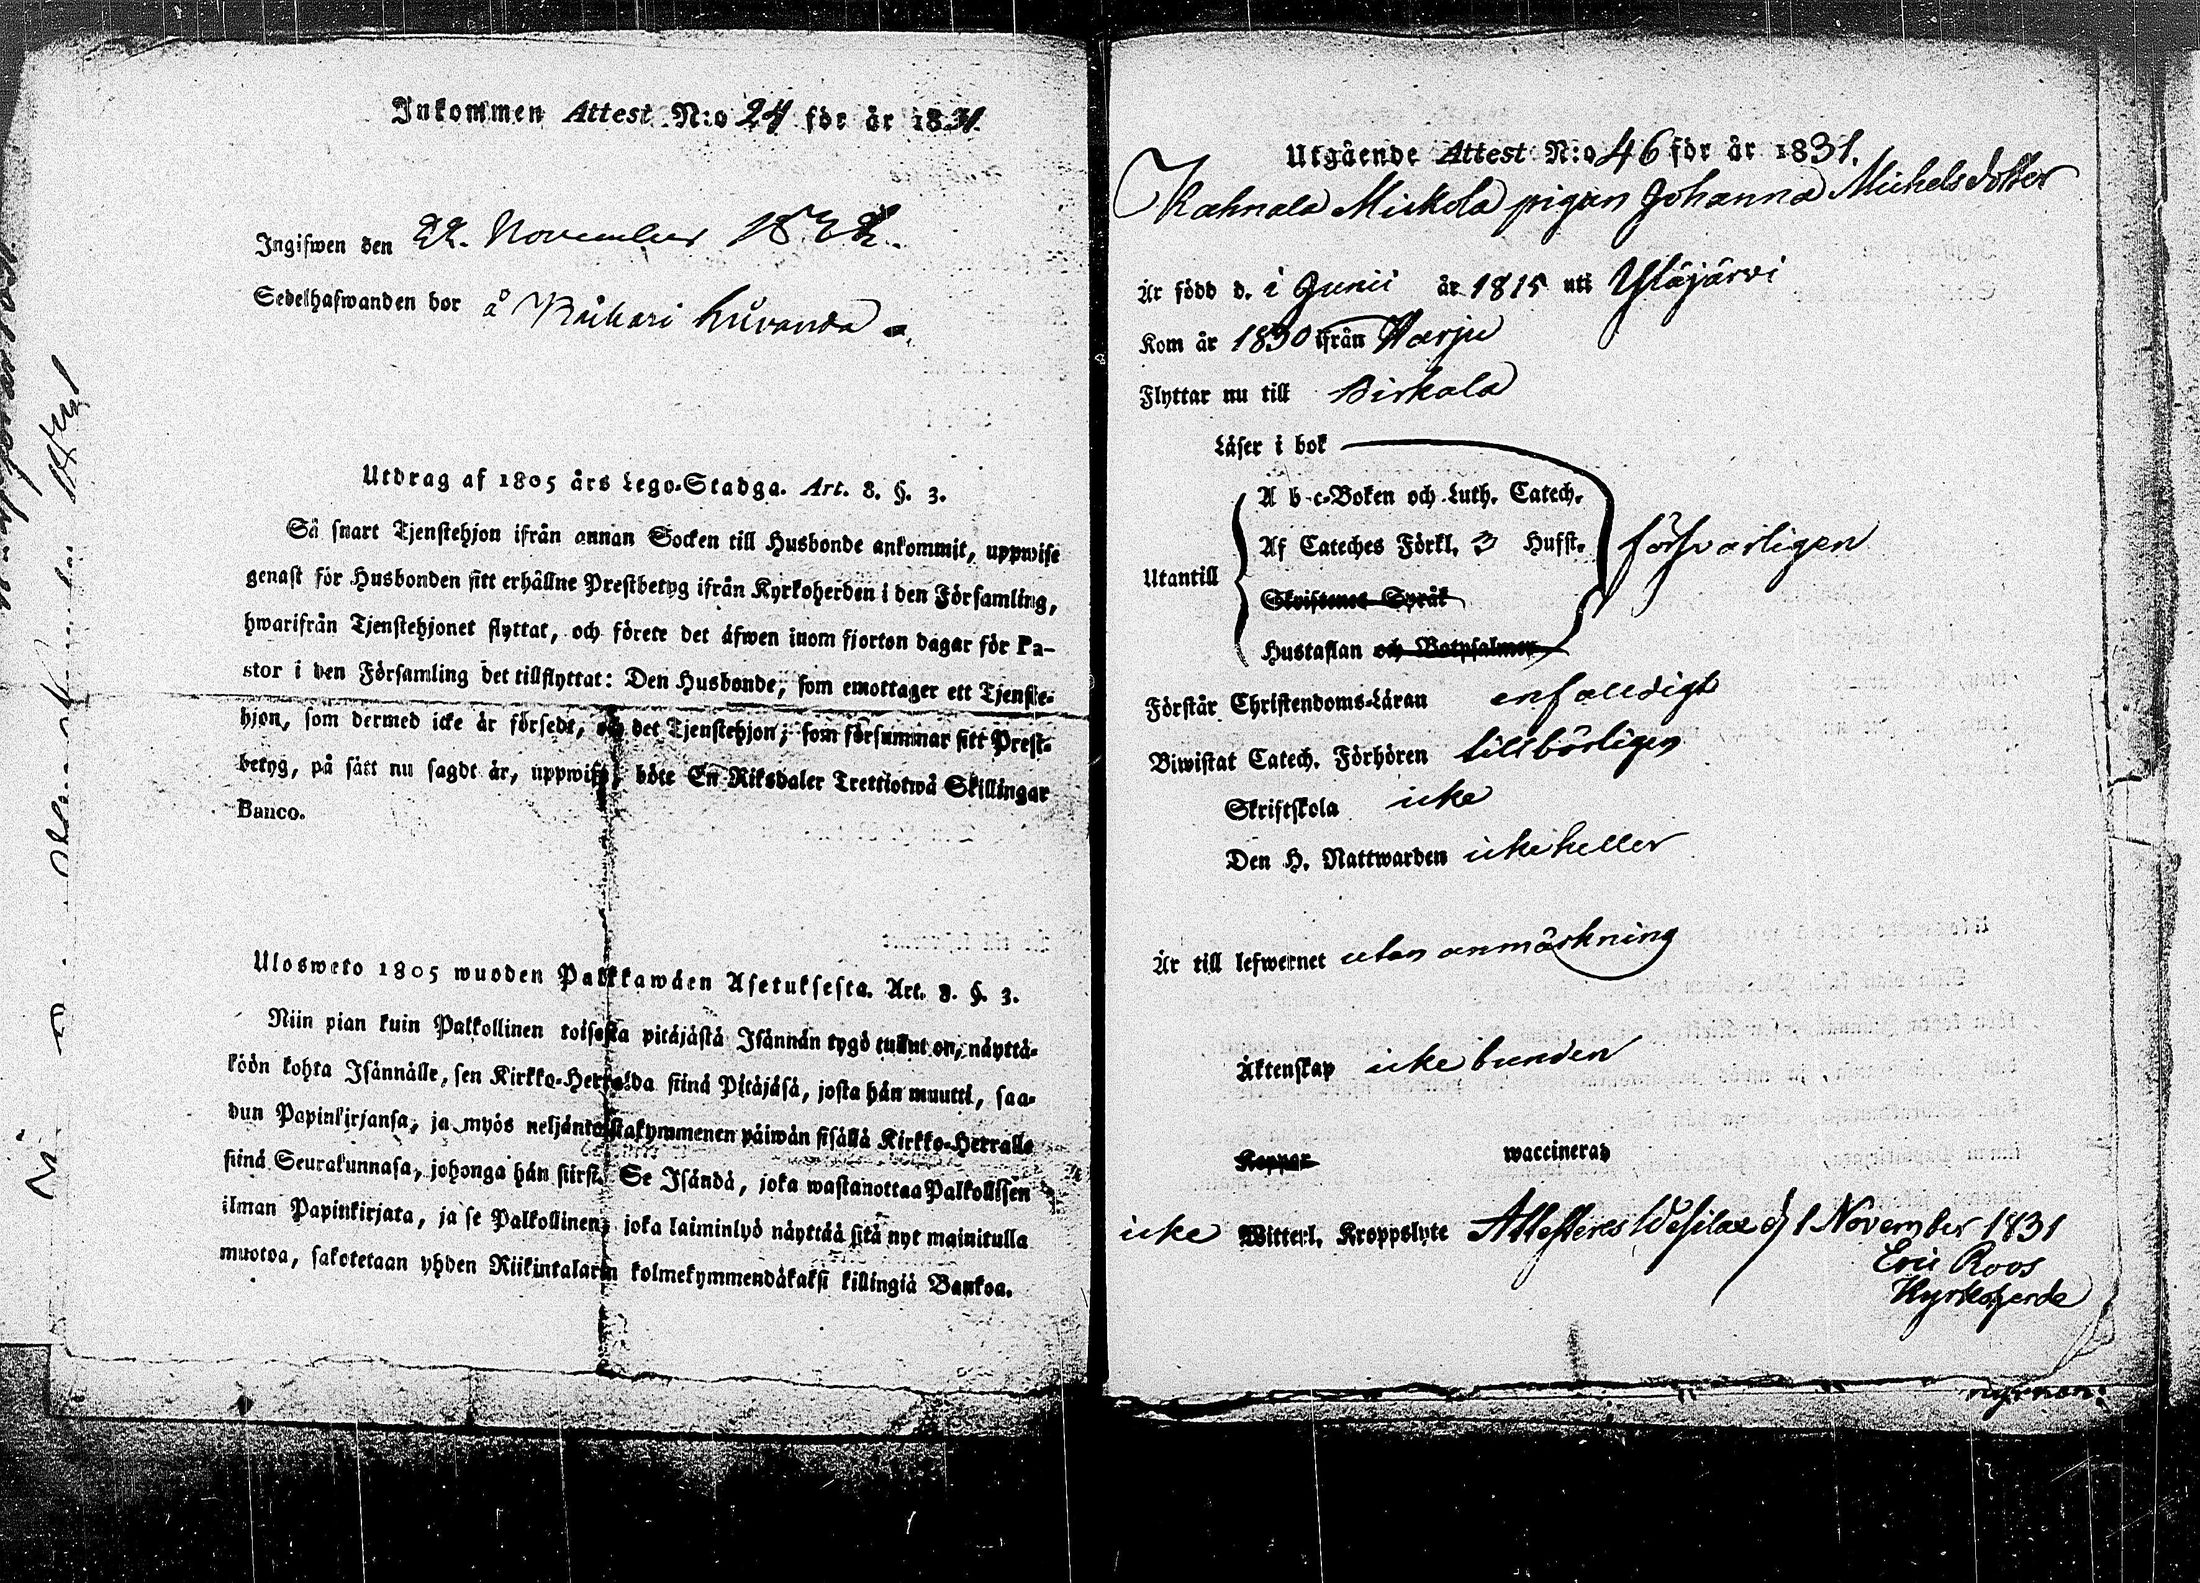 Inkommen Attest N:o 24 för år 1831.
Ingifwen den 22. November
Sedelhafwanden bor å
Utdrag af 1805 års Lego-Stadga. Art. 8. §. 3.
Så snart Tjenstehjon ifrån annan Socken till Husbonde ankommit, uppwise
genast för Husbonden sitt erhållne Prestbetyg ifrån Kyrkoherden i den Församling,
hwarifrån Tjenstehjonet flyttat, och förete det äfwen inom fjorton dagar för Pa-
stor i den Församling det tillflyttat: Den Husbonde, som emottager ett Tjenste-
hjon, som dermed icke är försedt, och det Tjenstehjon, som försummar sitt Prest-
betyg, på sätt nu sagdt är, uppwisa, böte En Riksdaler Trettiotwå Skillingar
Banco.
Ulosweto 1805 wuoden Palkkawäen Asetuksesta. Art. 8. §. 3.
Niin pian kuin Palkollinen toisesta pitäjästä Isännän tygö tullut on, näyttä-
köön kohta Isännälle, sen Kirkko-Herralda siinä Pitäjäsä, josta hän muutti, saa-
dun Papinkirjansa, ja myös neljäntoistakymmenen päiwän sisällä Kirkko-Herralle
siinä Seurakunnasa, johonga hän siirsi. Se Isändä, joka wastanottaa Palkollisen
ilman Papinkirjata, ja se Palkollinen, joka laiminlyö näyttää sitä nyt mainitulla
muotoa, sakotetaan yhden Riikintalarin kolmekymmendäkaksi killingiä Bankoa.
Utgående Attest N:o 46 för år 1831.
Kahnala Mickola pigan Johanna Michelsdotter
Är född d. i Junii år 1815 uti Ylöjärvi
Kom år 1830 ifrån Harju
Flyttar nu till Birkala
Läser i bok
A b c-Boken och Luth. Catech.
Af Cateches Förkl. 3 Hufst. försvarligen
Utantill
Skriftenes Språk
Hustaflan och Botpsalmer
Förstår Christendoms-Läran enfaldigt
Biwistat Catech. Förhören tillbörligen
Skriftskola icke
Den H. Nattwarden icke heller
Är till lefwernet utan anmärkning
Äktenskap icke bunden
Koppor waccinerad
icke Witterl. Kroppslyte Attesteras Wesilax d 1 November 1831
Eric Roos
Kyrkoherde